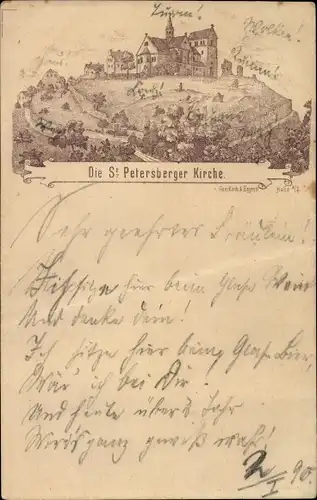 Turm!
Wolken!
Haus!
Baum!
Die St. Petersberger Kirche.
Halle a/S.
Sehr geehrtes Fräulein!
Ich sitze hier beim Glase Wein
Und denke dein!
Ich sitze hier beim Glase Bier,
Wär' ich bei Dir.
Und heute übers Jahr
Wird's ganz gewiß wahr!
2/I 90.